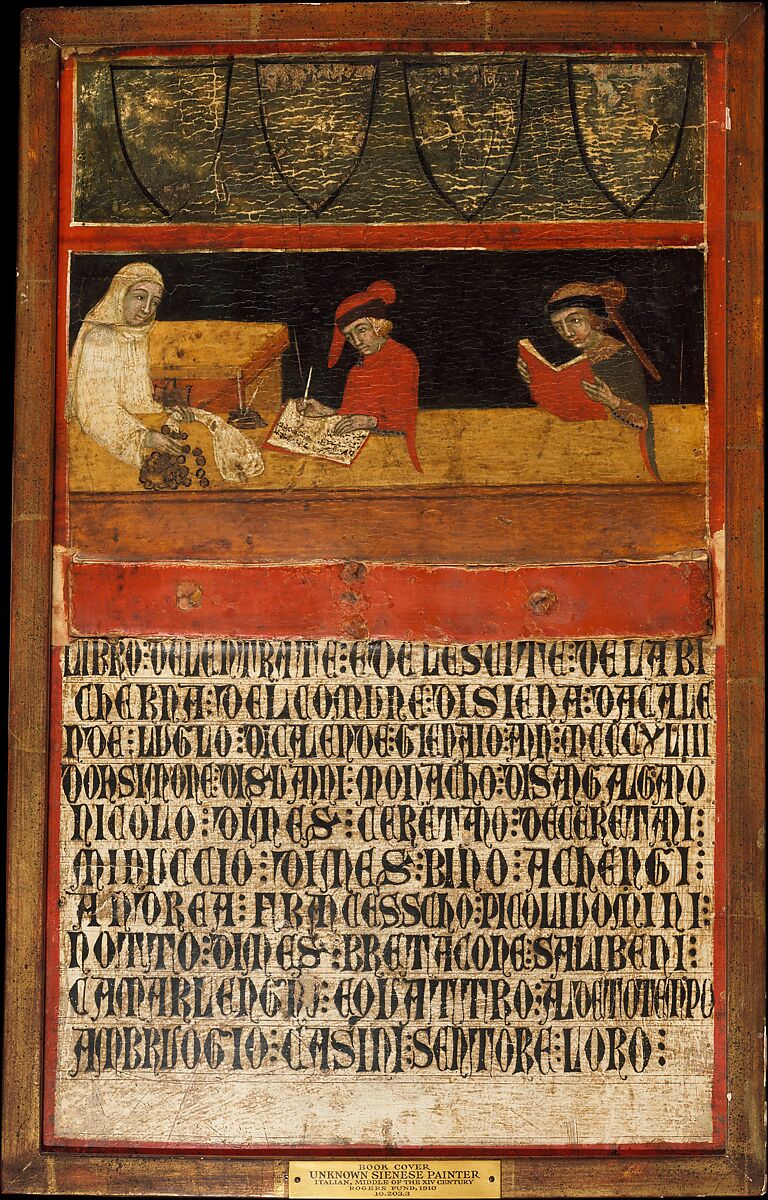 LIBRO:DELENTRATE:EDELESCITE:DELABI
CHERNA:DELCOMUNE:DISIENA:DACALE
NDE:LUGLO:DICALENDE:GIENAIO:ANN:MCCCXLIII
DONSIMONE:DISGIANNI:MONACHO:DISANGALGANO
NICOLO:DIMES:CERETANO:DECERETANI:
MINUCCIO:DIMES:BINO:ACHENGI:
ANDREA:FRANCESSCHO:PICOLIUOMINI:
NOTTO:DIMES:BRETACONE:SALIBENI:
CAMARLENGHI:EQUATTRO:ALDETOTENPO
AMBRUOGIO:CASINI:SENTORE:LORO:
BOOK COVER
UNKNOWN SIENESE PAINTER
ITALIAN, MIDDLE OF THE XIV CENTURY
ROGERS FUND, 1910
10.203.3